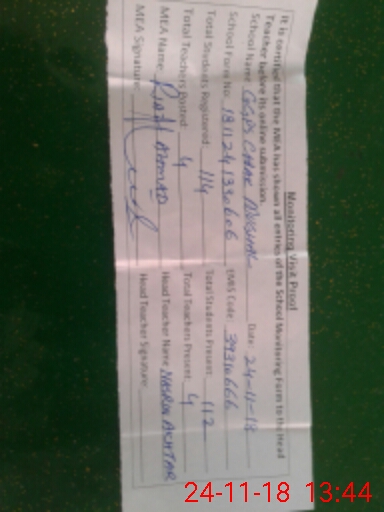 Monitoring Visit Proof
It is certified that the MEA has shown all entries of the School Monitoring Form to the Head
Teacher before its online submission.
School Name: GGPS CHAK Date: 24-11-18
School Form No: EMIS Code: 39310666
Total Students Registered: 114 Total Students Present: 112
Total Teachers Posted: 4 Total Teachers Present: 4
MEA Name: RIAZ AHMAD Head Teacher Name: AKHTAR
MEA Signature: Head Teacher Signature:
24-11-18 13:44